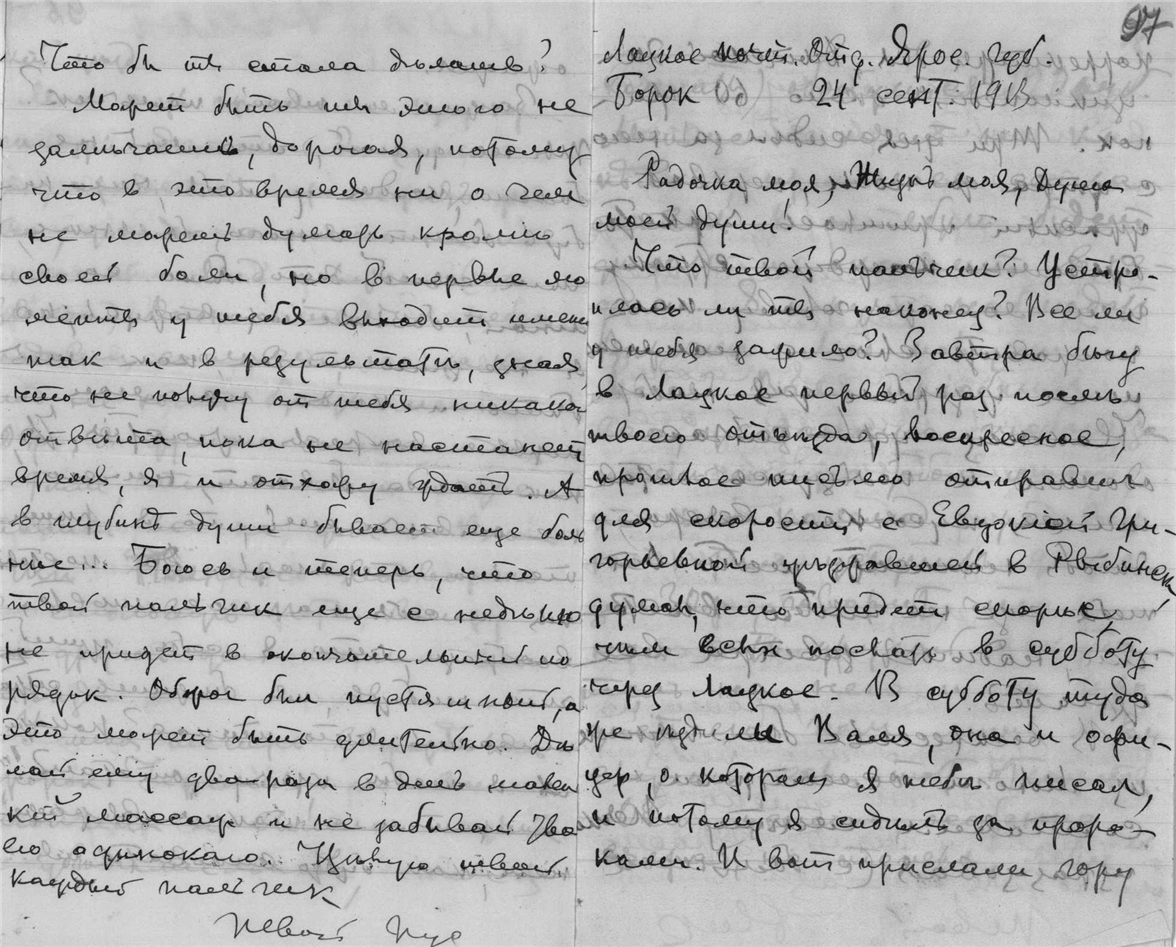 Что бы ты стала дѣлать?
Может быть ты этого не
замѣчаешь, дорогая, потому
что в это время ни о чем
не можешь думать кромѣ
своей боли, но в первые мо
менты у тебя выходит именно
так и в результатѣ, зная
что не получу от тебя никакого
отвѣта, пока не настанет
время, я и отхожу ждать. А
в глубинѣ души бывает еще боль
нѣе... Боюсь и теперь, что
твой пальчик еще с недѣлю
не придет в окончательный по
рядок. Ожог был пустяшный, а
это может быть длительно. Дѣ
лай ему два раза в день
массаж и не забывай
его одинокаго. Цѣлую твой
каждый пальчик
97
Лацкое почт. Отд. Яросл. губ.
Борок 24 сент. 1913
Радочка моя, Жизнь моя, Душа
моей души!
Что твой пальчик? Устро-
илась ли ты наконец? Все ли
у тебя зажило? Завтра
в Лацкое первый раз послѣ
твоего отъѣзда, воскресное,
прошлое письмо отправил
для скорости с Евдокіей Гри-
горьевной в Рыбинск,
думая, что придет скорѣе,
чѣм всѣх послать в субботу
через Лацкое. В субботу туда
же ѣздили Валя, она и офи-
цер, о котором я тебѣ писал,
и потому я сидѣл за
И вот прислали гору